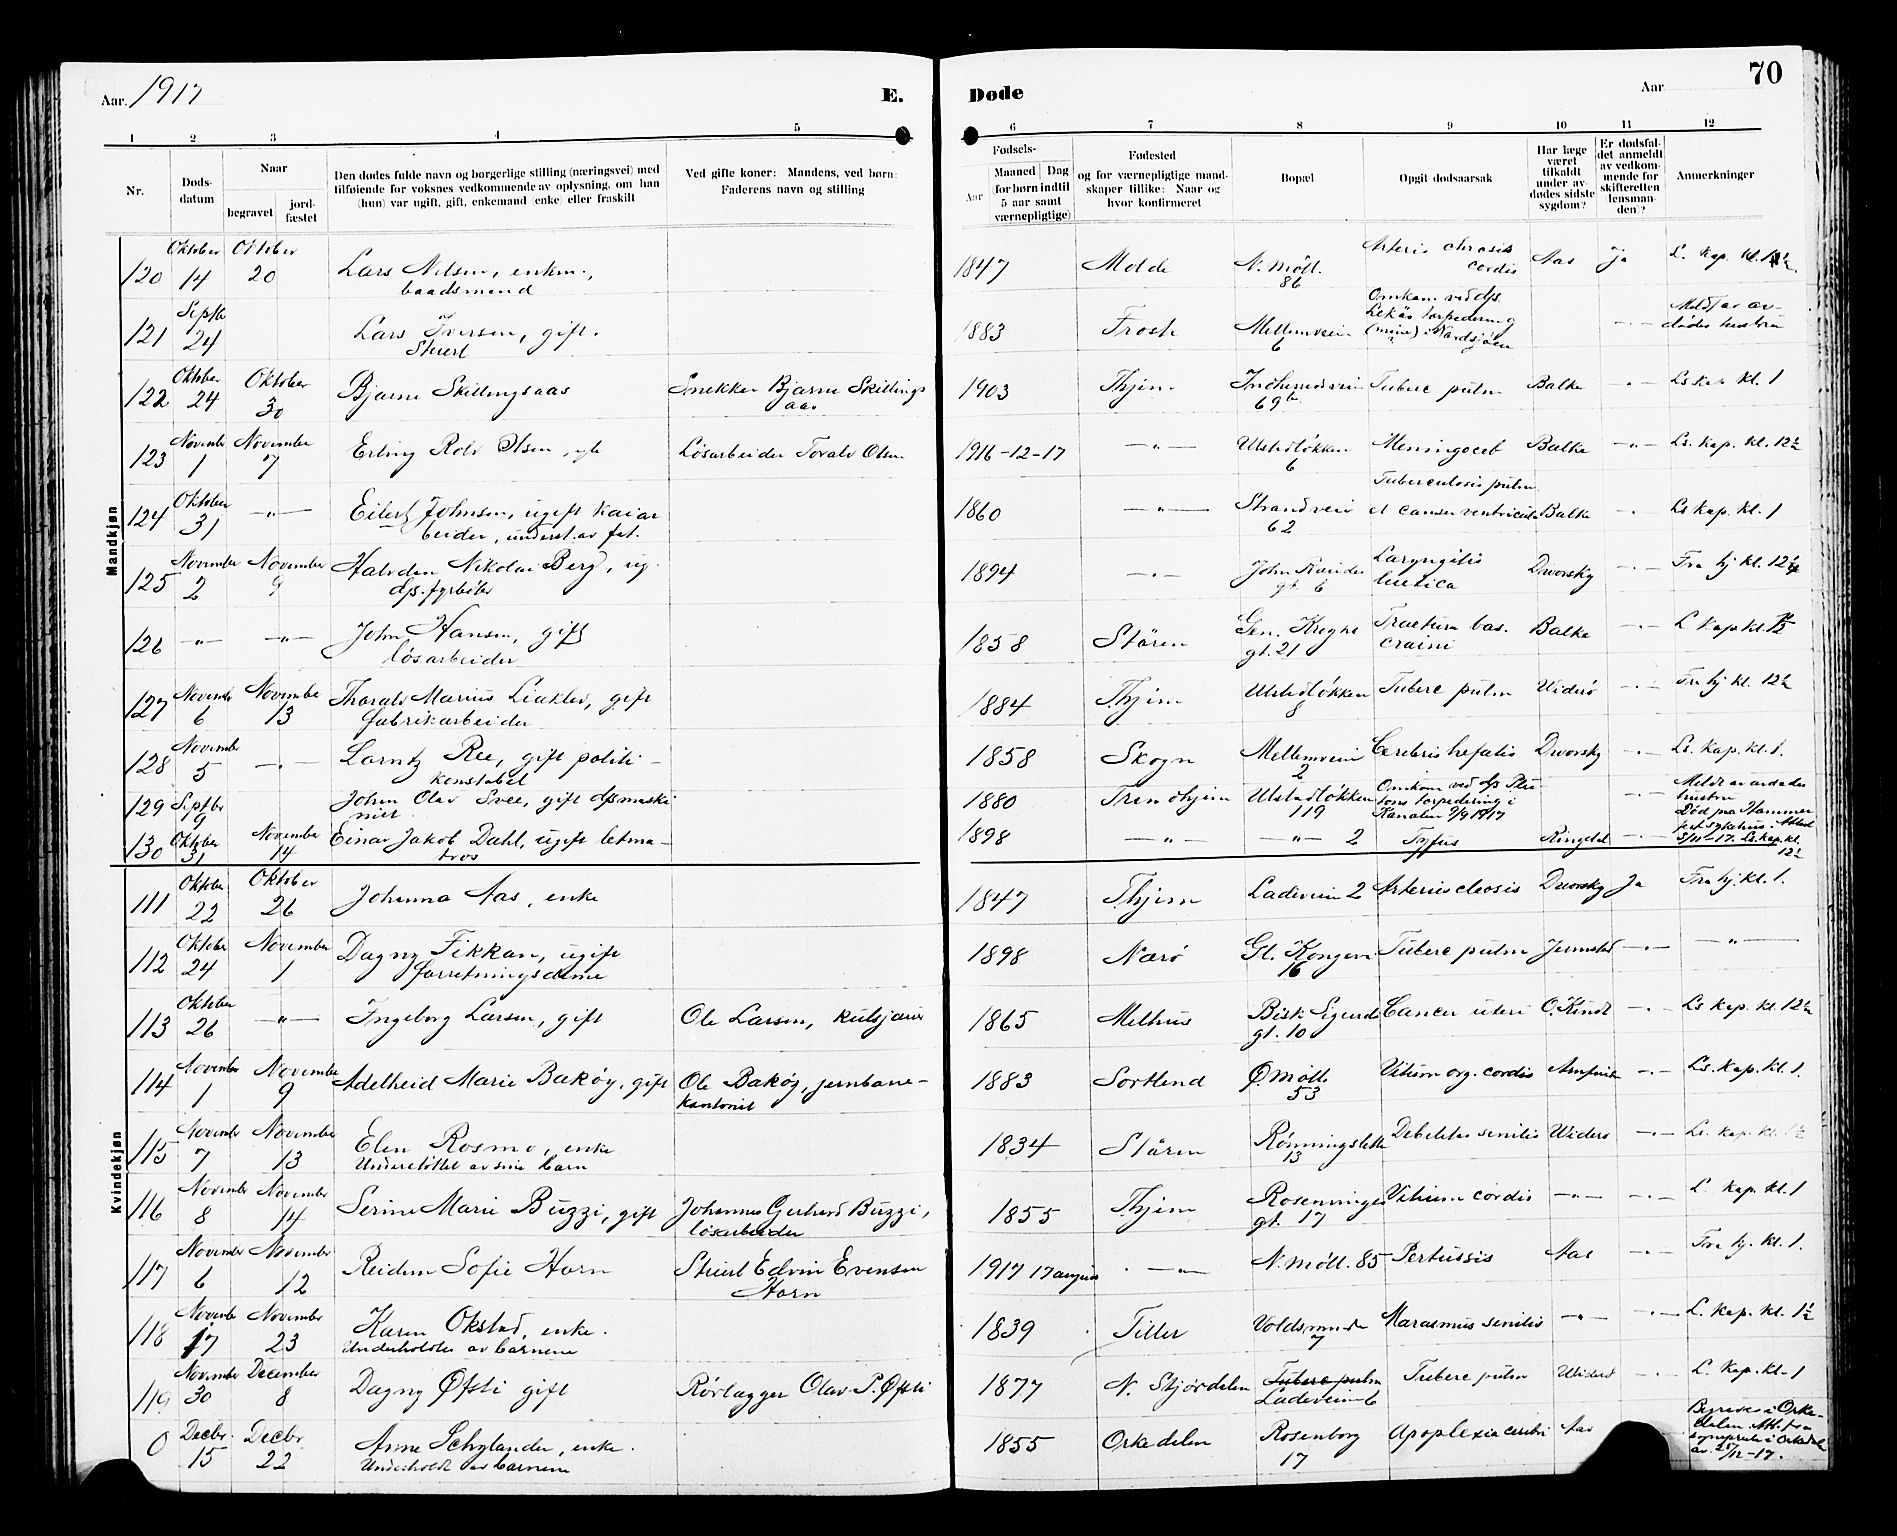 Aar. 1917
E.
Døde
Aar
70
1 2 3 4 5 6 7 8 9 10 11 12
Nr.
Døds-
datum
Naar
begravet
jord-
fæstet
Den dødes fulde navn og borgerlige stilling (næringsvei) med
tilføiende for voksnes vedkommende av oplysning, om han
(hun) var ugift, gift, enkemand (enke) eller fraskilt
Ved gifte koner: Mandens, ved børn:
Faderens navn og stilling
Fødsels-
Aar
Maaned Dag
for børn indtil
5 aar samt
værnepligtige)
Fødested
og for værnepligtige mand-
skaper tillike: Naar og
hvor konfirmeret
Bopæl
Opgit dødsaarsak
Har læge
været
tilkaldt
under av-
dødes sidste
sygdom?
Er dødsfal-
det anmeldt
av vedkom-
mende for
skifteretten
(lensman-
den)?
Anmerkninger
Mandkjøn
120 Oktober 14 Oktober 20 Lars Nilsen, enkm., baadsmand 1847 Molde N. Möll. 86 cordis Aas Ja L. Kap. kl.
121 Septbr 24 Lars Iversen, gift. Stuert 1883 Frosta Mellemveien 6 Omkom. ved d/s. torpedering -"-
122 Oktober 24 Oktober 30 Bjarne Skillingsaas Snekker Bjarne Skillings aas 1903 Thjem 69b Tuberc pulm Balke -"- Ls kap kl. 1
123 November 1 November 7 Erling Rolv Olsen Lösarbeider Torald Olsen 1916-12-17 -"- Ulstadløkken 6 Balke -"- Ls. kap. kl. 12½
124 Oktober 31 -"- Eilert Johnsen, ugift kaiar beider, underst. av fat. 1860 -"- Strandveien 62 Tuberculosis pulm et cancer ventriculi Balke -"- Ls kap. kl. 1
125 November 2 November 9 Halvdan Nikolai Berg, ug. d/s. fyrbøter 1894 -"- gt. 6 Laryngitis luetica Dworsky -"- Fra hj kl. 12½
126 -"- -"- John Hansen, gift lösarbeider 1858 Stören Gen. Kroghs gt. 21 Fractura bas. craini Balke -"- L Kap kl.
127 November 6 November 13 Thorald Marius Liaklev, gift fabrikarbeider 1884 Thjem Ulstadløkken 8 Tuberc pulm Widerö -"- Fra hj kl. 12½
128 November 5 -"- Lorntz Ree, gift politi- konstabel 1858 Skogn Mellemveien 2 Dworsky -"- Ls. Kap. kl. 1.
129 Septbr 9 Johan Olav Svee, gift d/smaski nist 1880 Trondhjem Ulstadløkken 119 Omkom ved d/s torpedering i Kanalen 9/9 1917 -"-
130 Oktober 31 November 14 Einar Jakob Dahl, ugift letma- tros 1898 -"- -"- 2 Tyfus Ringdal -"- Død paa 31/10-17. Ls. kap. kl. 12½
Kvindekjøn
111 Oktober 22 Oktober 26 Johanna Aas, enke 1847 Thjem Ladeveien 2 Dworsky Ja Fra hj. kl. 1.
112 Oktober 24 November 1 Dagny Fikkan, ugift forretningsdame 1898 Nærö Gl. Kongev. 16 Tuberc pulm Jermstad -"- -"-
113 Oktober 26 -"- Ingeborg Larsen, gift Ole Larsen, kulsjauer 1865 Melhus Bisk. Sigurds gt. 10 Cancer uteri O. Kindt -"- Ls Kap. kl. 12½
114 November 1 November 9 Adelheid Marie Bakøy, gift Ole Bakøy, jernbane- kontorist 1883 Sortland Ø. Möll. 53 Vitium org. cordis -"- Ls. Kap. kl. 1.
115 November 7 November 13 Elen Rosmo, enke Understöttet av sine barn 1834 Stören Rönningsletta 13 Debilitas senilis Widerö -"- Ls. Kap. kl. 1½
116 November 8 November 14 Serine Marie Buzzi, gift Johannes Gerhard Buzzi, lösarbeider 1855 Thjem gt. 17 Vitium cordis -"- -"- L. Kap. kl. 1
117 November 6 November 12 Reidun Sofie Horn Stuert Edvin Evensen Horn 1917 17 august -"- N. Möll. 85 Pertussis Aas -"- Fra hj. kl. 1.
118 November 17 November 23 Karen Okstad, enke. Underholdtes av barnene 1839 Tiller Voldsminde 7 Marasmus senilis -"- -"- L. Kap. kl. 1½
119 November 30 December 8 Dagny Øfsti gift Rörlægger Olav P. Øfsti 1877 N. Stjördalen Tuberc pulm Ladeveien 6 Tuberc pulm Widerö -"- L. Kap. kl. 1
0 Decbr. 15 Decbr 22 Anne Schylander, enke. Underholdt av barnene 1855 Orkedalen Rosenborg 17 Apoplexia cerebri Aas Begraves i Orke- dalen. av 25/12-17.